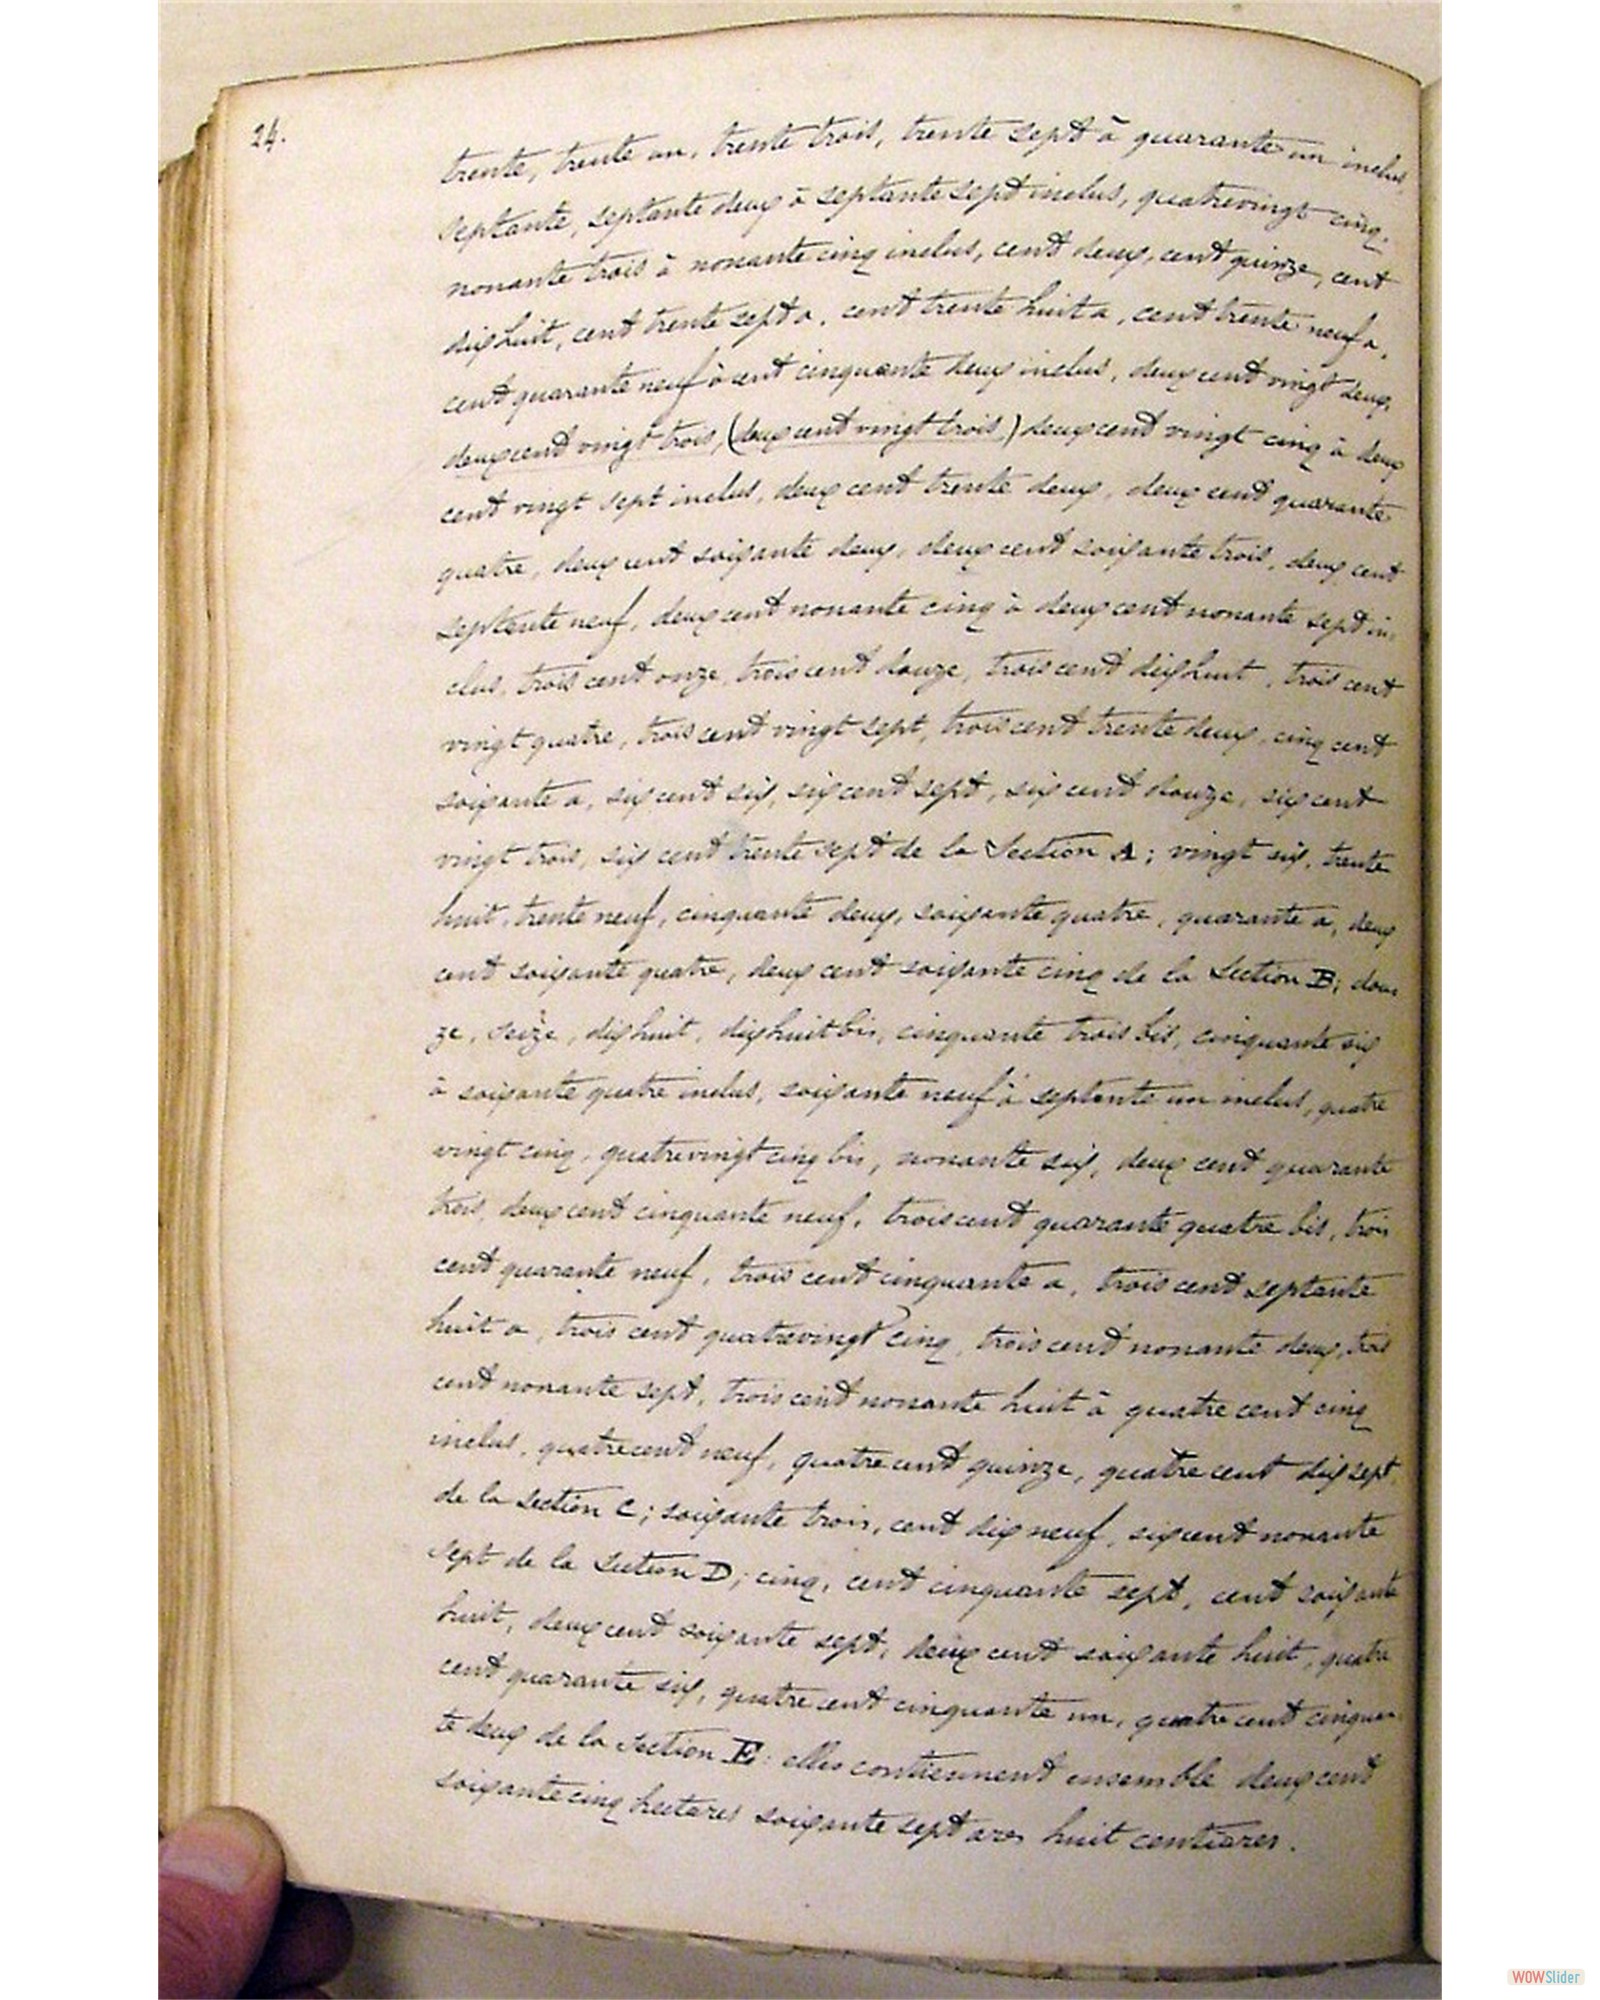 24.
trente, trente un, trente trois, trente sept à quarante un inclus,
septante, septante deux à septante sept inclus, quatrevingt cinq,
nonante trois à nonante cinq inclus, cent deux, cent quinze, cent
dix huit, cent trente sept a, cent trente huit a, cent trente neuf a,
cent quarante neuf à cent cinquante deux inclus, deux cent vingt deux,
deux cent vingt trois, (deux cent vingt trois,) deux cent vingt cinq à deux
cent vingt sept inclus, deux cent trente deux, deux cent quarante
quatre, deux cent soixante deux, deux cent soixante trois, deux cent
septante neuf, deux cent nonante cinq à deux cent nonante sept in-
clus, trois cent onze, trois cent douze, trois cent dix huit, trois cent
vingt quatre, trois cent vingt sept, trois cent trente deux, cinq cent
soixante a, six cent six, six cent sept, six cent douze, six cent
vingt trois, six cent trente sept de la Section A; vingt six, trente
huit, trente neuf, cinquante deux, soixante quatre, quarante a, deux
cent soixante quatre, deux cent soixante cinq de la Section B; dou-
ze, seize, dix huit, dix huit bis, cinquante trois bis, cinquante six
à soixante quatre inclus, soixante neuf à septante un inclus, quatre
vingt cinq, quatrevingt cinq bis, nonante six, deux cent quarante
trois, deux cent cinquante neuf, trois cent quarante quatre bis, trois
cent quarante neuf, trois cent cinquante a, trois cent septante
huit a, trois cent quatrevingt cinq, trois cent nonante deux, trois
cent nonante sept, trois cent nonante huit à quatre cent cinq
inclus, quatre cent neuf, quatre cent quinze, quatre cent dix sept,
de la Section C; soixante trois, cent dix neuf, six cent nonante
sept de la Section D; cinq, cent cinquante sept, cent soixante
huit, deux cent soixante sept, deux cent soixante huit, quatre
cent quarante six, quatre cent cinquante un, quatre cent cinquan-
te deux de la Section E: elles contiennent ensemble deux cent
soixante cinq hectares soixante sept ares huit centiares.
WOWSlider